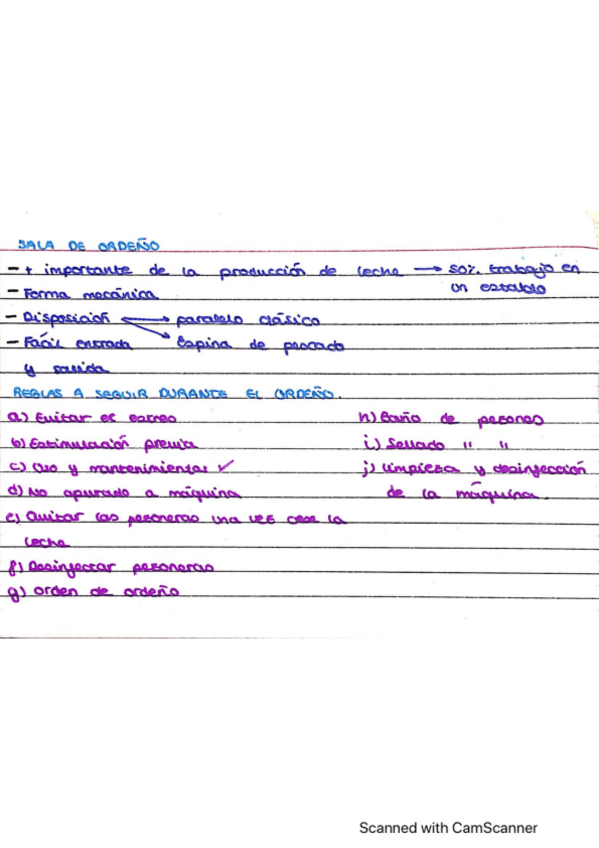 SALA DE ORDEÑO
- + importante de la producción de leche → 50% trabajo en
un establo
- Forma mecánica
- Disposición → paralelo clásico
→ Espina de pescado
- Fácil entrada
y salida
REGLAS A SEGUIR DURANTE EL ORDEÑO.
a) Evitar es estres
b) Estimulación previa
c) Uso y mantenimiento ✓
d) No apurado a máquina
e) Quitar las pezoneras una vez cese la
leche
f) Desinfectar pezoneras
g) Orden de ordeño
h) Baño de pezones
i) Sellado " "
j) Limpieza y desinfección
de la máquina.
Scanned with CamScanner